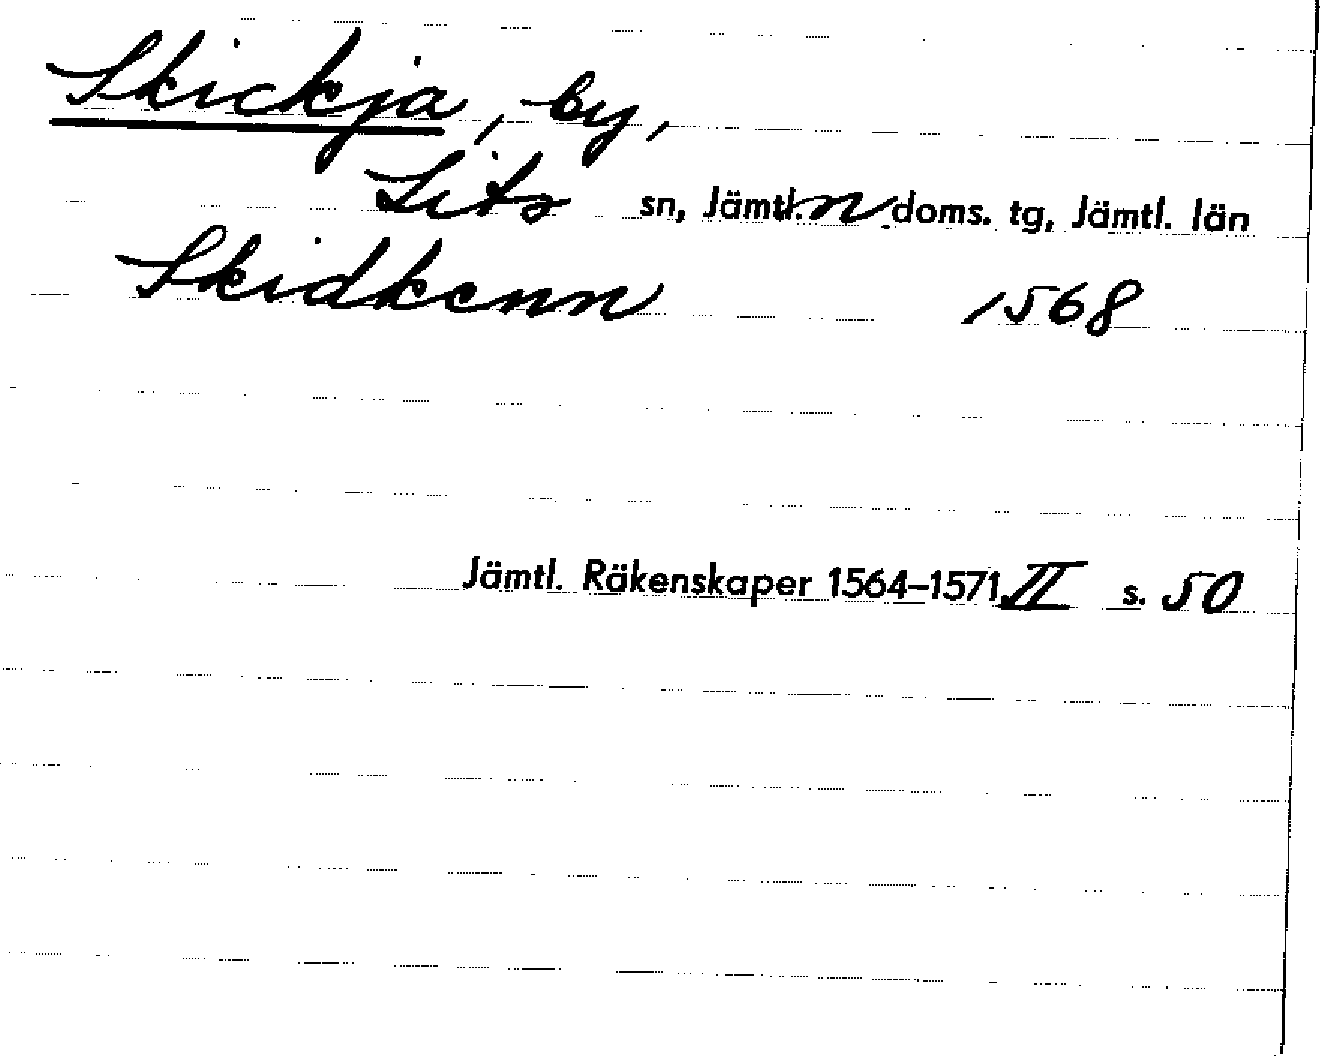 Skickja, by,
Lits sn, Jämtl. n doms. tg, Jämtl. län
Skidkenn 1568
Jämtl. Räkenskaper 1564–1571 II s. 50